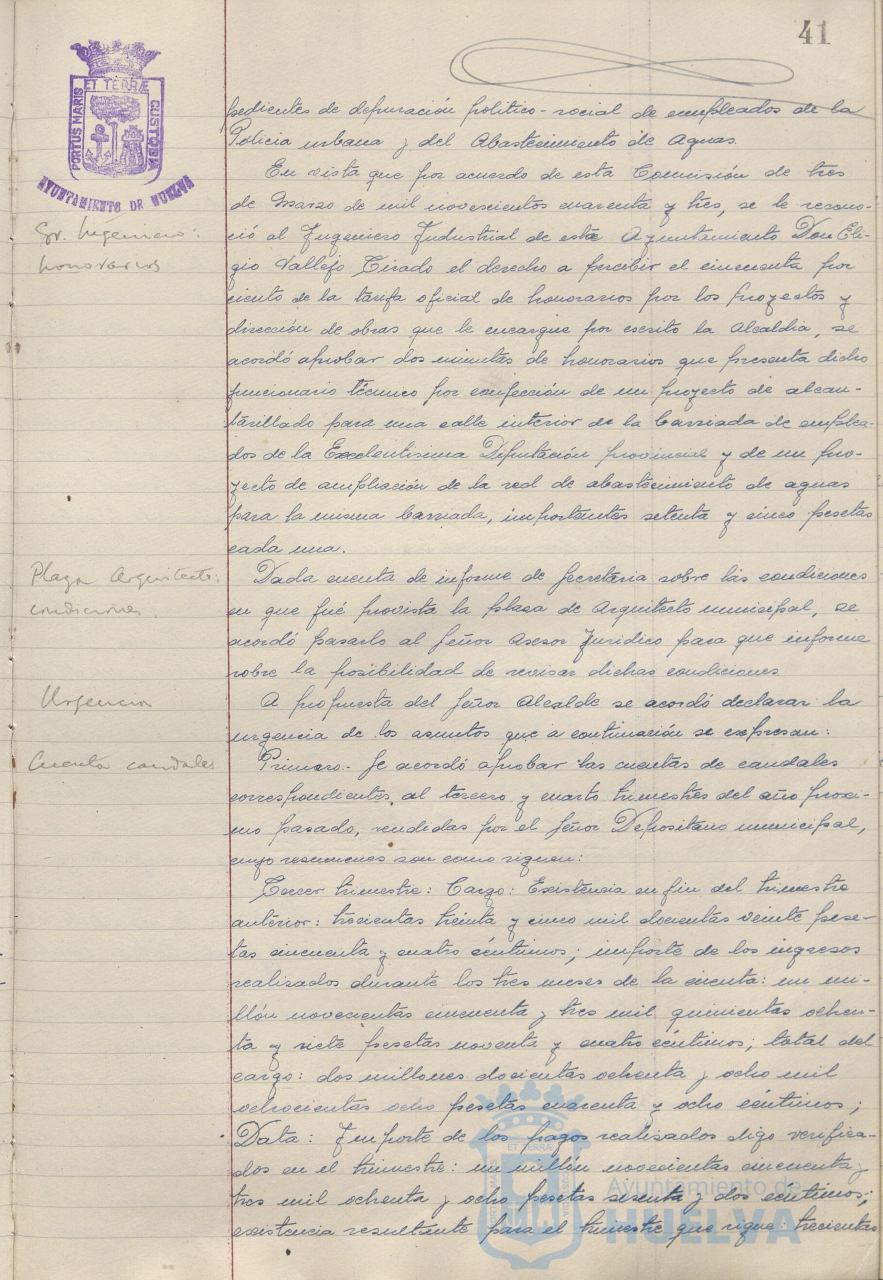 41
ET TERRÆ
PORTUS MARIS
CUSTODIA
AYUNTAMIENTO DE HUELVA
pedientes de depuración político-social de empleados de la
Policia urbana y del Abastecimiento de Aguas.
En vista que por acuerdo de esta Comisión de tres
de Marzo de mil novecientos cuarenta y tres, se le recono-
Sr. Ingeniero:
ció al Ingeniero Industrial de este Ayuntamiento Don Eli-
honorarios
gio Vallejo Tirado el derecho a percibir el cincuenta por
ciento de la tarifa oficial de honorarios por los proyectos y
dirección de obras que le encargue por escrito la Alcaldia, se
acordó aprobar dos minutas de honorarios que presenta dicho
funcionario técnico por confección de un proyecto de alcan-
tarillado para una calle interior de la barriada de emplea-
dos de la Excelentisima Diputación provincial y de un pro-
yecto de ampliación de la red de abastecimiento de aguas
para la misma barriada, importantes setenta y cinco pesetas
cada una.
Plaza Arquitecto:
Dada cuenta de informe de Secretaria sobre las condiciones
condiciones
en que fué provista la plaza de Arquitecto municipal, se
acordó pasarlo al Señor Asesor Juridico para que informe
sobre la posibilidad de revisar dichas condiciones
Urgencia
A propuesta del Señor Alcalde se acordó declarar la
urgencia de los asuntos que a continuación se expresan:
Cuenta caudales
Primero.- Se acordó aprobar las cuentas de caudales
correspondientes al tercero y cuarto trimestres del año proxi-
mo pasado, rendidas por el Señor Depositario municipal,
cuyo resumenes son como siguen:
Tercer trimestre: Cargo: Existencia en fin del trimestre
anterior: trecientas treinta y cinco mil docientas veinte pese-
tas cincuenta y cuatro céntimos; importe de los ingresos
realizados durante los tres meses de la cuenta: un mi-
llón novecientas cincuenta y tres mil quinientas ochen-
ta y siete pesetas noventa y cuatro céntimos; total del
cargo: dos millones docientas ochenta y ocho mil
ochocientas ocho pesetas cuarenta y ocho céntimos;
Data: Importe de los pagos realizados digo verifica-
dos en el trimestre: un millón novecientas cincuenta y
tres mil ochenta y ocho pesetas sesenta y dos céntimos;
existencia resultante para el trimestre que sigue: trecientas
Ayuntamiento de
HUELVA